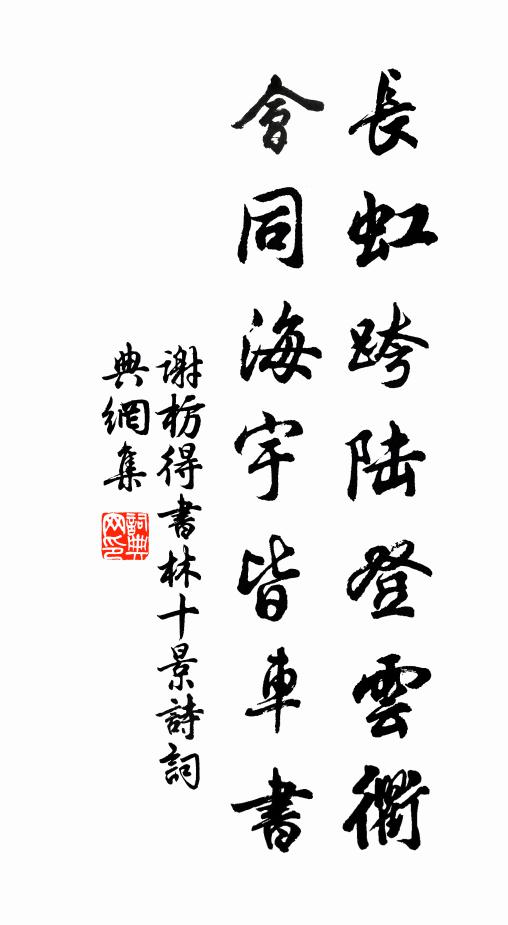 長虹跨陆登雲衢
會同海宇皆車書
謝枋得書林十景詩詞
典網集
詞典网印